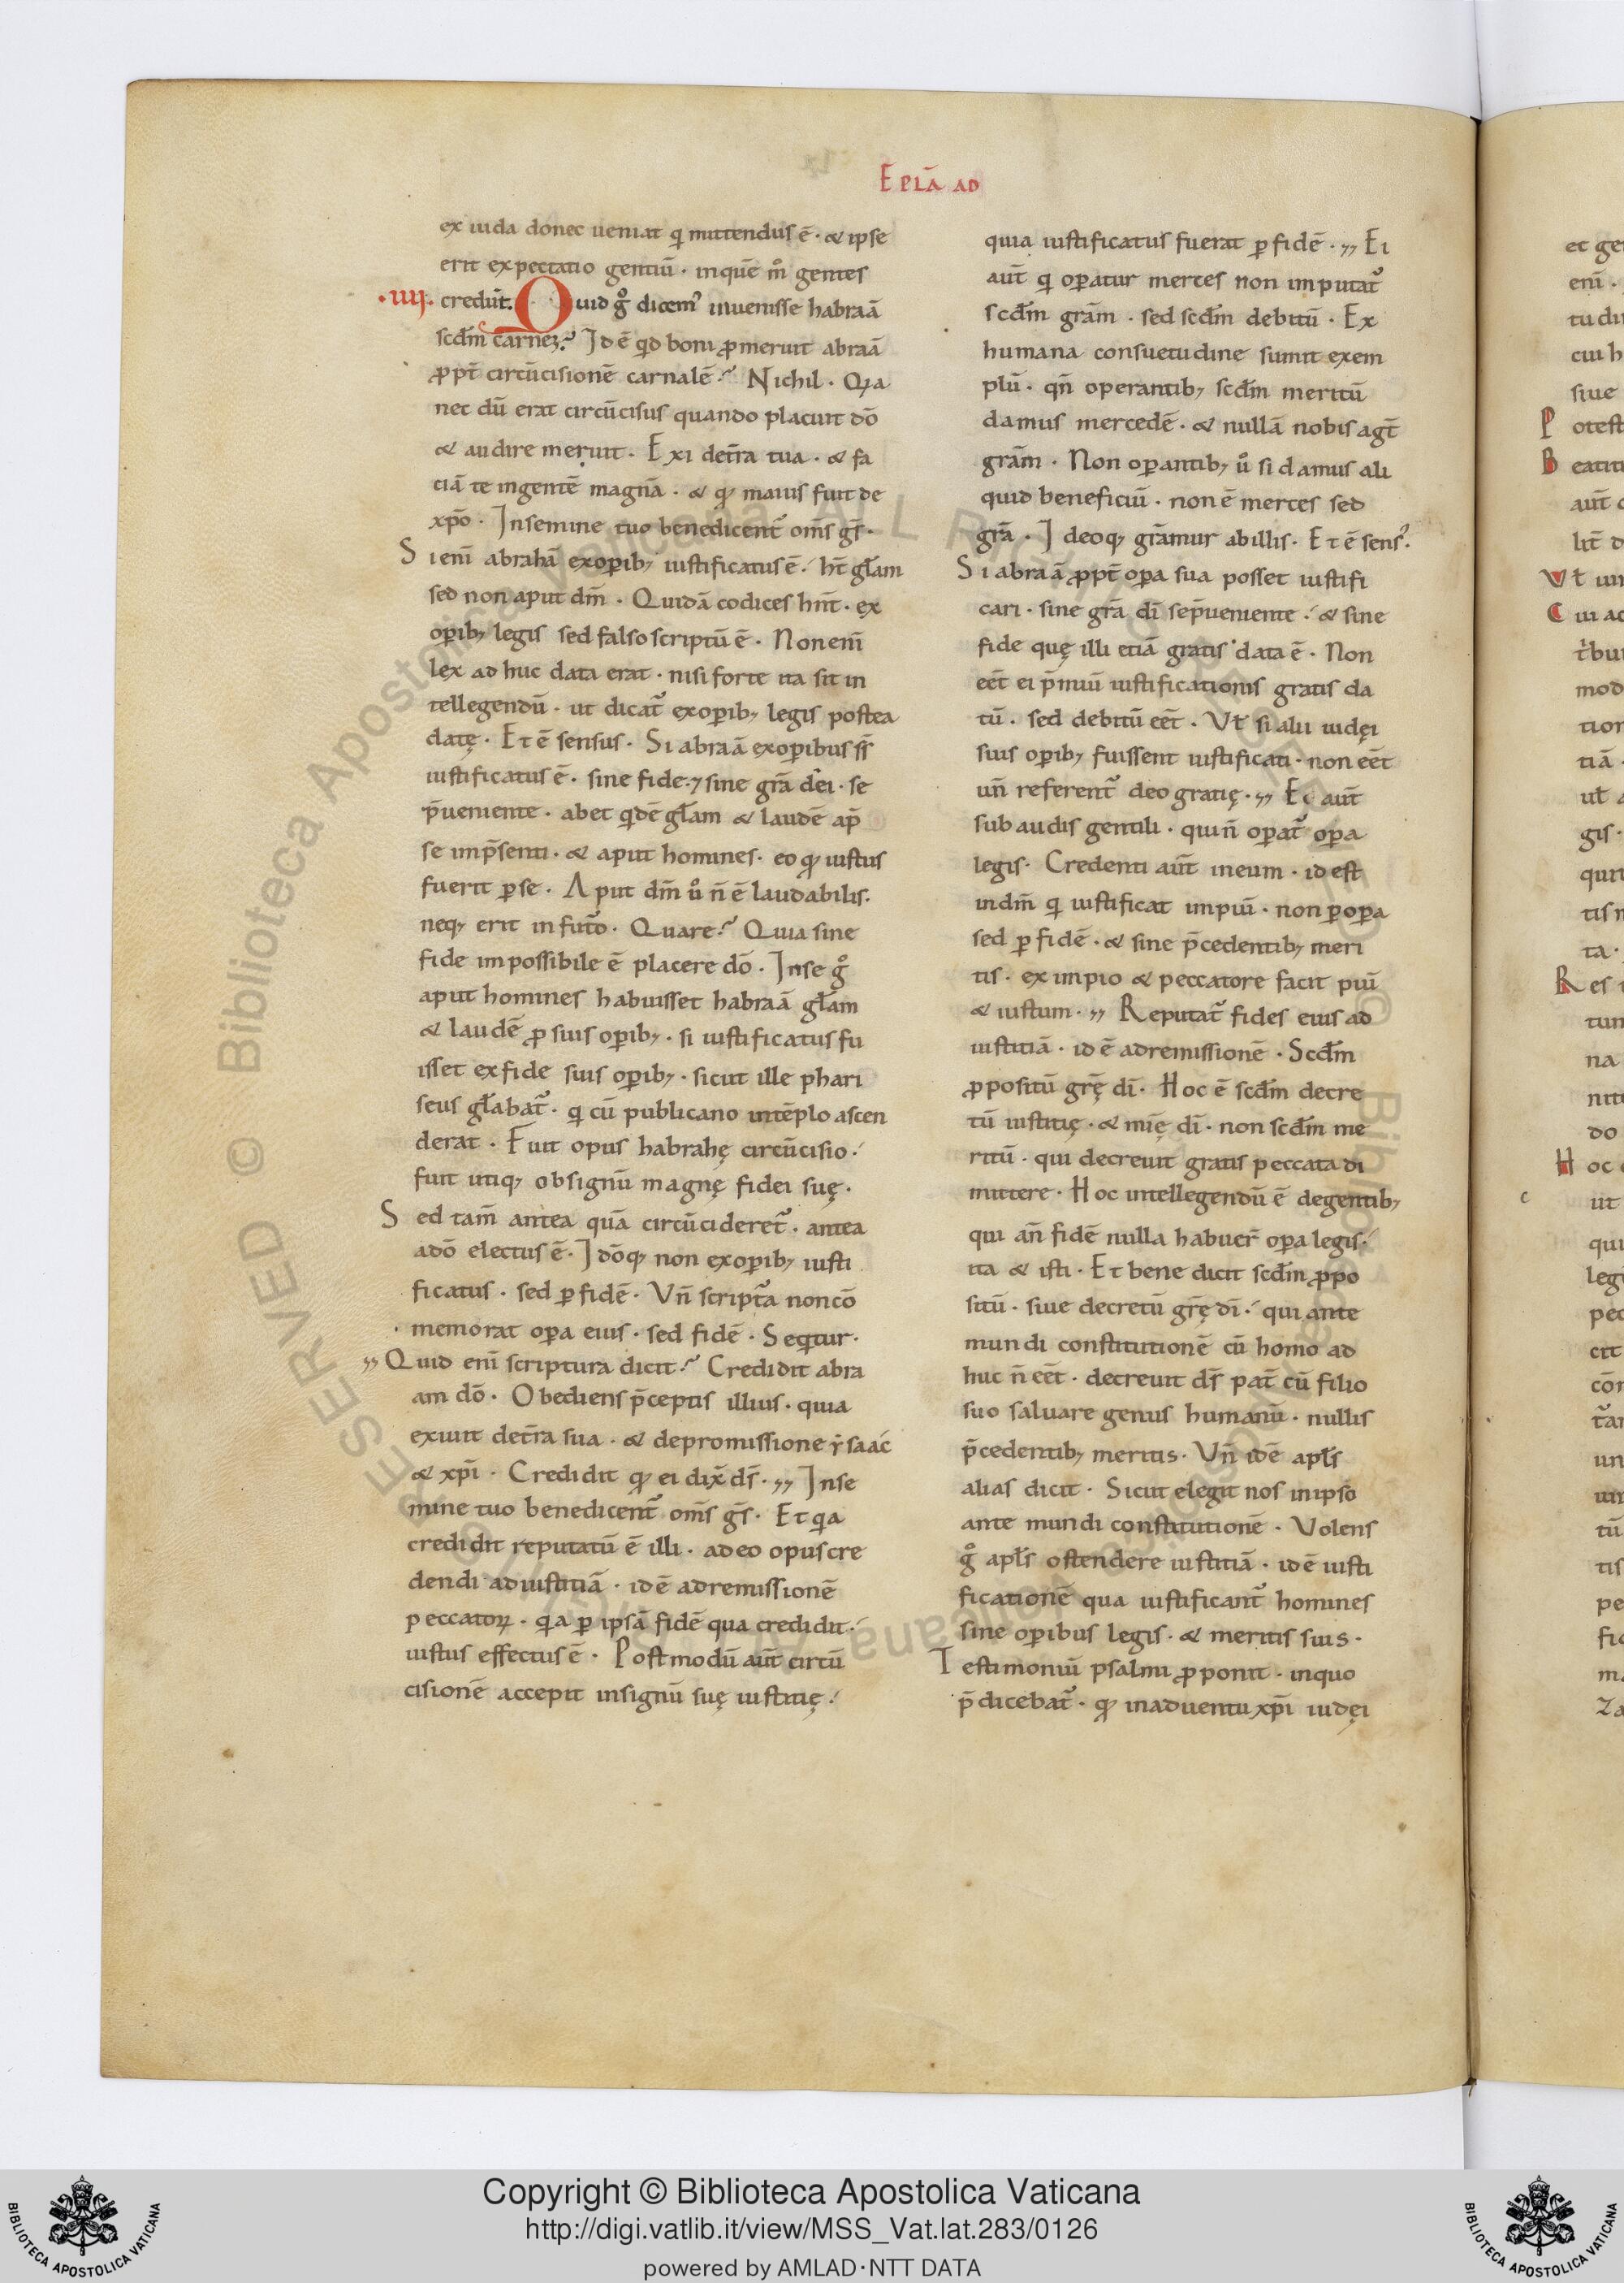 EPLA̅ AD
ex iuda donec ueniat q mittendus ē · & ipse
erit expectatio gentiū · inquē m̊ gentes
·IIII· credūt. Quid g̊ dicem᾽ inuenisse habraā
scd̄m carnē? Id ē qd boni ꝓmeruit abraā
ꝓpt̄ circūcisionē carnalē? Nichil · Qia
nec dū erat circūcisus quando placuit dō
& audire meruit · Exi det̄ra tua · & fa
ciā te ingentē magnā · & qꝫ maius fuit de
xp̄o · Insemine tuo benedicent᾽ om̄s gs̄ ·
Si eni̅ abrahā exoꝑibꝫ iustificatus ē · ht̄ gl̄am
sed non aput dm̄ · Quidā codices hnt̄ · ex
oꝑibꝫ legis sed falso scriptū ē · Non eni̅
lex ad huc data erat · nisi forte ita sit in
tellegendū · ut dicat᾽ exoꝑibꝫ legis postea
datę · Et ē sensus · Si abraā exoꝑibus sꝭ
iustificatus ē · sine fide · ⁊ sine grā dei · se
p̄ueniente · abet qdē gl̄am & laudē ap̄
se imp̄senti · & aput homines · eo qꝫ iustus
fuerit ꝑse · Aput dm̄ ů n̄ ē laudabilis ·
neqꝫ erit in fut᾽o · Quare? Quia sine
fide impossibile ē placere dō · Inse g̊
aput homines habuisset habraā gl̄am
& laudē ꝓ suis oꝑibꝫ · si iustificatus fu
isset exfide suis oꝑibꝫ · sicut ille phari
seus gl̄abat᾽ · q cū publicano intēplo ascen
derat · Fuit opus habrahę circūcisio ·
fuit utiqꝫ obsignū magnę fidei suę ·
Sed tam̄ antea quā circūcideret᾽ · antea
adō electus ē · Idōqꝫ non exoꝑibꝫ iusti
ficatus · sed ꝑ fidē · Vn̄ script᾽a non cō
memorat oꝑa eius · sed fidē · Seqitur ·
,, Quid eni̅ scriptura dicit? Credidit abra
am dō · Obediens p̄ceptis illius · quia
exiuit det̄ra sua · & depromissione ysaac
& xp̄i · Credidit qꝫ ei dix̄ ds̄ · ,, Inse
mine tuo benedicent᾽ om̄s gs̄ · Et qia
credidit reputatū ē illi · adeo opus cre
dendi adiustitiā · id ē adremissionē
peccatoꝝ · qia ꝑ ipsā fidē qua credidit ·
iustus effectus ē · Postmodū aut̄ circū
cisionē accepit insignū suę iustitię ·
quia iustificatus fuerat ꝑ fidē · ,, Ei
aut̄ q oꝑatur merces non imputat᾽
scd̄m grām · sed scd̄m debitū · Ex
humana consuetudine sumit exem
plū · qn̄ operantibꝫ scd̄m meritū
damus mercedē · & nullā nobis agt̄
grām · Non oꝑantibꝫ ů si damus ali
quid beneficiū · non ē merces sed
grā · Ideoqꝫ grāmur abillis · Et ē sens᾽ ·
Si abraā ꝓpt̄ oꝑa sua posset iustifi
cari · sine grā di̅ sep̄ueniente · & sine
fide quę illi etiā gratis data ē · Non
eēt ei p̄miū iustificationis gratis da
tū · sed debitū eēt · Vł si alii iudęi
suis oꝑibꝫ fuissent iustificati · non eēt
un̄ referent᾽ deo gratię · ,, Ei aut̄
subaudis gentili · qui n̄ oꝑat᾽ oꝑa
legis · Credenti aut̄ ineum · id est
indm̄ q iustificat impiū · non ꝑoꝑa
sed ꝑ fidē · & sine p̄cedentibꝫ meri
tis · ex impio & peccatore facit piū
& iustum · ,, Reputat᾽ fides eius ad
iustitiā · id ē adremissionē · Scd̄m
ꝓpositū gr̄ę di̅ · Hoc ē scd̄m decre
tū iustitię · & mi̅ę di̅ · non scd̄m me
ritū · qui decreuit gratis peccata di
mittere · Hoc intellegendū ē degentibꝫ
qui an̄ fidē nulla habuer̄ oꝑa legis ·
ita & isti · Et bene dicit scd̄m ꝓpo
sitū · siue decretū gr̄ę di̅ · qui ante
mundi constitutionē cū homo ad
huc n̄ eēt · decreuit ds̄ pat̄ cū filio
suo saluare genus humanū · nullis
p̄cedentibꝫ meritis · Vn̄ idē apl̄s
alias dicit · Sicut elegit nos inipso
ante mundi constitutionē · Volens
g̊ apl̄s ostendere iustitiā · id ē iusti
ficationē qua iustificant᾽ homines
sine oꝑibus legis · & meritis suis ·
Testimoniū psalmi ꝓponit · inquo
p̄dicebat᾽ · qꝫ inaduentu xp̄i iudęi
Copyright © Biblioteca Apostolica Vaticana
http://digi.vatlib.it/view/MSS_Vat.lat.283/0126
powered by AMLAD·NTT DATA
BIBLIOTECA APOSTOLICA VATICANA
BIBLIOTECA APOSTOLICA VATICANA